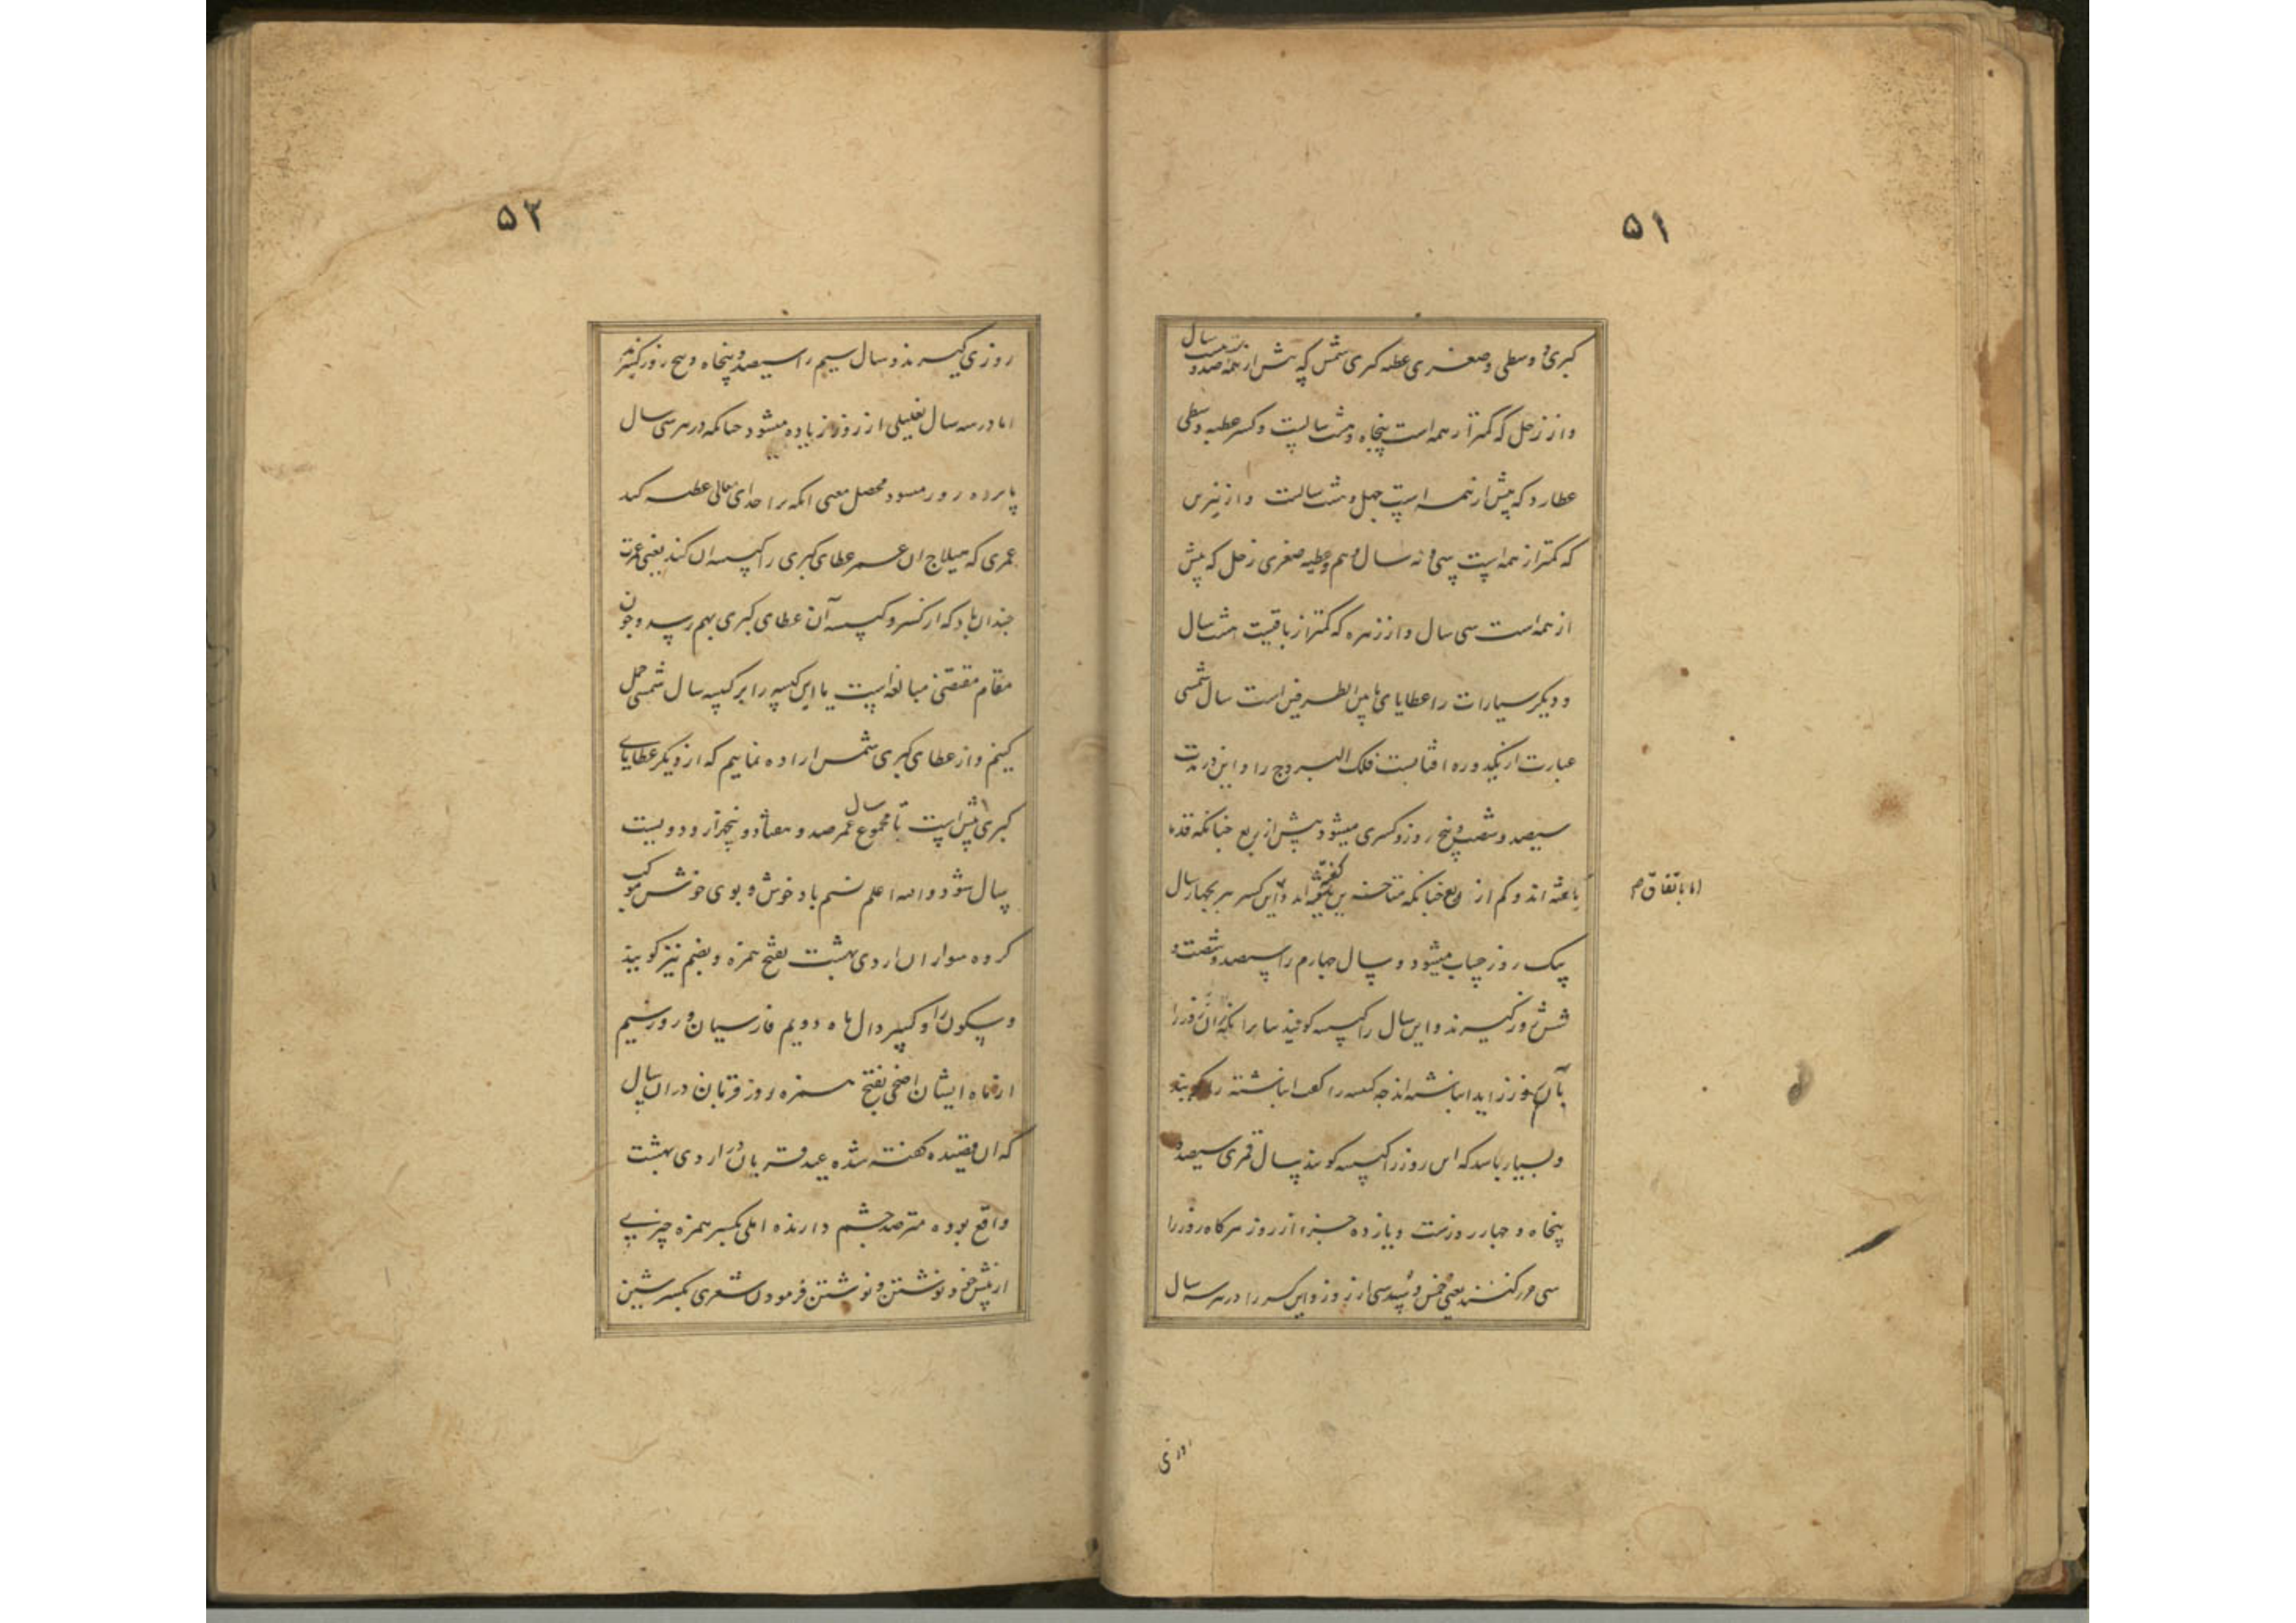 ۵۱
کبری و وسطی و صغری عطیه کبری شمس که بیش از همه صد و بیست سال
و از زحل که کمتر از همه است پنجاه و هشت سالست و کسر عطیه وسطی
عطارد که بیش از همه است چهل و هشت سالست و از نیرین
که کمتر از همه است سی و نه سال و هم عطیه صغری زحل که بیش
از همه است سی سال و از زهره که کمتر از باقیست هشت سال
و دیگر سیارات را عطایای ما بین الطرفین است سال شمسی
عبارت از یکدوره افتابست فلک البروج را و این در مدت
سیصد و شصت و پنج روز و کسری میشود بیش از ربع چنانکه قدما
یافته اند و کم از ربع چنانکه متاخرین گفته اند و این کسر هر بچهار سال
اما باتفاق م
یک روز حساب میشود و سال چهارم را سیصد و شصت و
شش روز گیرند و این سال را کبیسه گویند بنا برانکه آن روز را
بآن روز زاید انباشته اند چه کبسه را انباشته را گویند
و بسیار باشد که این روز را کبیسه گویند سال قمری سیصد و
پنجاه و چهار روزست و یازده جزء از روز هرگاه روز را
سی جزء کنند یعنی خمس و سدسی از روز و این کسر را در هر سه سال
روزی
۵۲
روزی گیرند و سال سیم را سیصد و پنجاه و پنج روز گیرند
اما در سه سال تفضیلی از روز زیاده میشود چنانکه در هر سی سال
یازده روز میشود محصل معنی انکه ترا خدای تعالی عطیه کند
عمری که هیلاج ان عمر عطای کبری را کبیسه ان کند یعنی عمرت
چندان باد که از کسر و کبیسه آن عطای کبری بهم رسد و چون
مقام مقتضی مبالغه است یا این کبیسه را بر کبیسه سال شمسی حمل
کنیم و از عطای کبری شمس اراده نماییم که از دیگر عطایای
کبری بیش است تا مجموع عمر صد و هفتاد و پنجهزار و دویست
سال شود والله اعلم نسیم باد خوش و بوی خوش موکب
گروه سواران اردی بهشت بفتح همزه و بضم نیز گویند
و سکون را و کسر دال ماه دویم فارسیان و روز سیم
از ماه ایشان اضحی بفتح همزه روز قربان در ان سال
که ان قصیده گفته شده عید قربان در اردی بهشت
واقع بوده مترصد چشم دارنده املی بکسر همزه چیزی
از پیش خود نوشتن و نوشتن فرمودن شعری بکسر شین